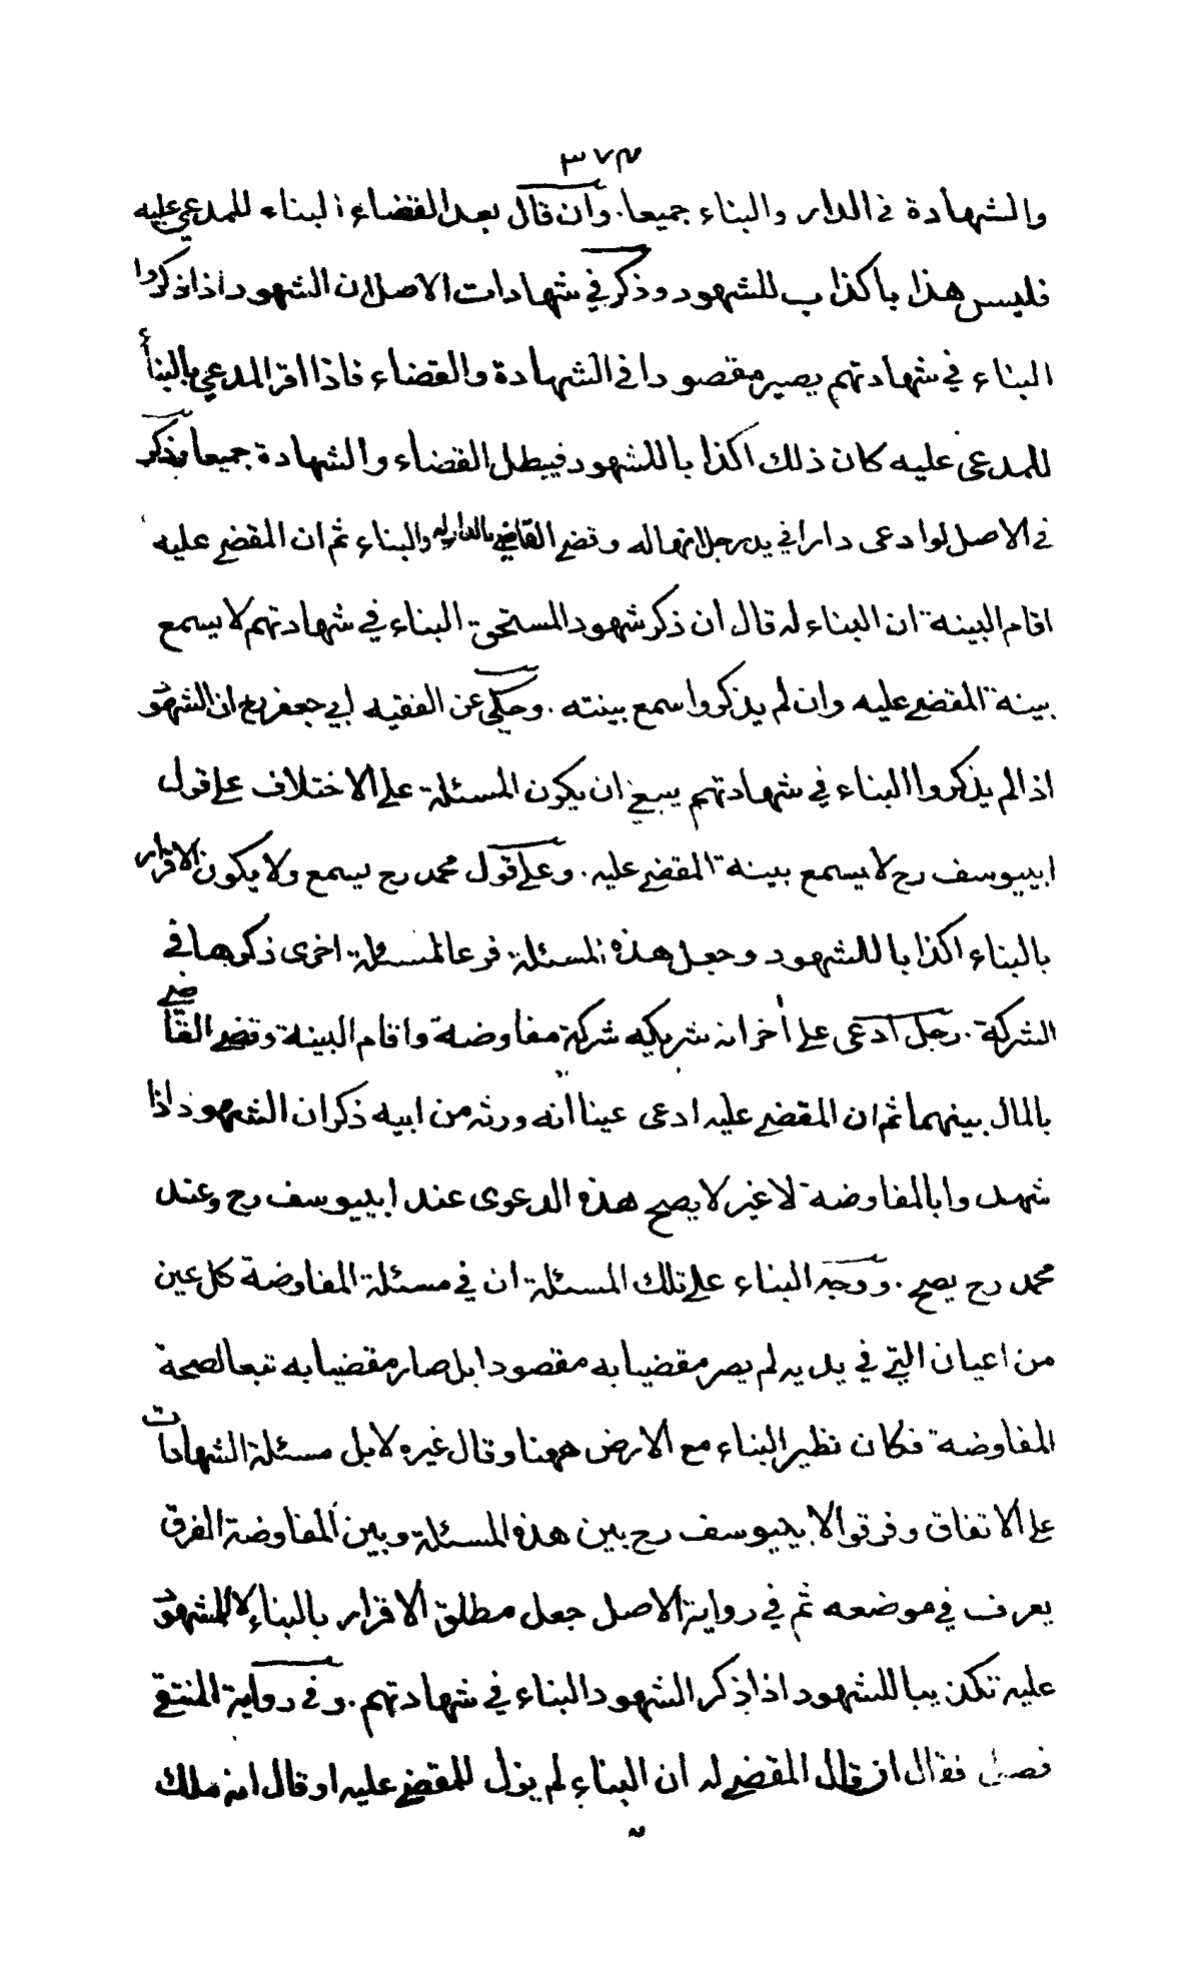 ٣٧٣
والشهادة في الدار والبناء جميعا . وان قال بعد القضاء البناء للمدعي عليه
فليس هذا باكذاب للشهود وذكر في شهادات الاصل ان الشهود اذا ذكروا
البناء في شهادتهم يصير مقصودا في الشهادة والقضاء فاذا اقر المدعي بالبناء
للمدعى عليه كان ذلك اكذابا للشهود فيبطل القضاء والشهادة جميعا وذكر
في الاصل لو ادعى دارا في يد رجل انها له وقضى القاضي بالدار له والبناء ثم ان المقضي عليه
اقام البينة ان البناء له قال ان ذكر شهود المستحق البناء في شهادتهم لا يسمع
بينة المقضي عليه وان لم يذكروا سمع بينته . وحكي عن الفقيه ابي جعفر رح ان الشهود
اذا لم يذكروا البناء في شهادتهم ينبغي ان يكون المسئلة على الاختلاف على قول
ابييوسف رح لا يسمع بينة المقضي عليه . وعلى قول محمد رح يسمع ولا يكون الاقرار
بالبناء اكذابا للشهود وجعل هذه المسئلة فرعا لمسئلة اخرى ذكرها في
الشركة . رجل ادعى على اخر انه شريكه شركة مفاوضة واقام البينة وقضى القاضي
بالمال بينهما ثم ان المقضي عليه ادعى عينا انه ورثه من ابيه ذكر ان الشهود اذا
شهدوا بالمفاوضة لا غير لا يصح هذه الدعوى عند ابييوسف رح وعند
محمد رح يصح . ووجه البناء على تلك المسئلة ان في مسئلة المفاوضة كل عين
من اعيان التي في يديه لم يصر مقضيا به مقصودا بل صار مقضيا به تبعا لصحة
المفاوضة فكان نظير البناء مع الارض ههنا وقال غيره لا بل مسئلة الشهادات
على الاتفاق وفرقوا لابييوسف رح بين هذه المسئلة وبين المفاوضة الفرق
يعرف في موضعه ثم في رواية الاصل جعل مطلق الاقرار بالبناء للمشهود
عليه تكذيبا للشهود اذا ذكر الشهود البناء في شهادتهم . وفي رواية المنتقى
فصل فقال ان قال المقضي له ان البناء لم يزل للمقضي عليه او قال انه ملك